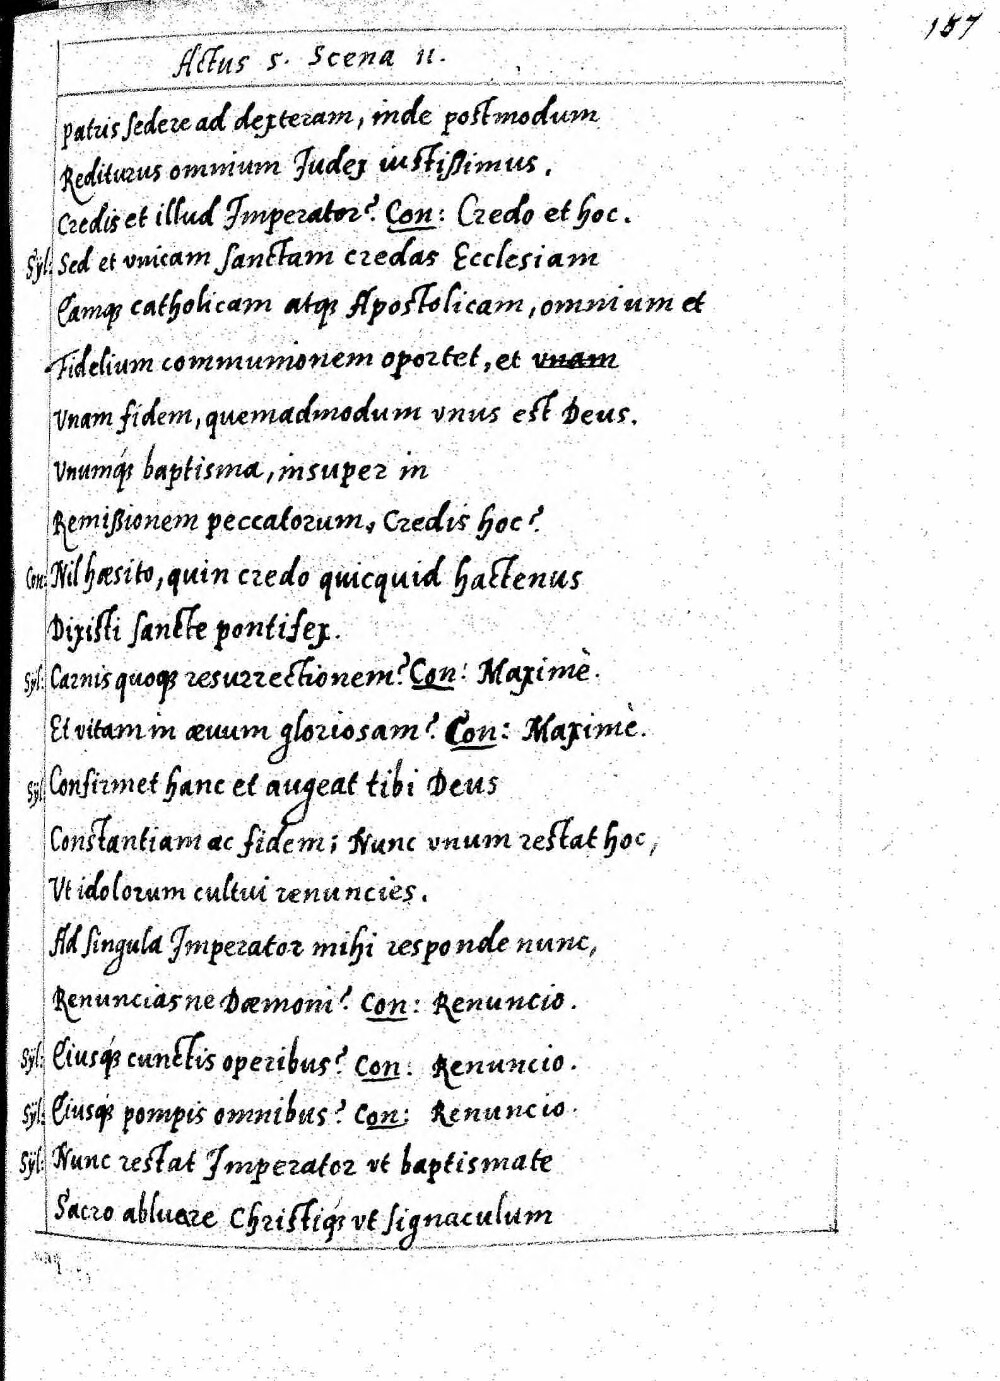 187
Actus 5. Scena 11.
Patris sedere ad dexteram, inde postmodum
Rediturus omnium Judex iustißimus.
Credis et illud Imperator? Con: Credo et hoc.
Syl: Sed et vnicam sanctam credas Ecclesiam
Eamq; catholicam atq; Apostolicam, omnium et
Fidelium communionem oportet, et vnam
Vnam fidem, quemadmodum vnus est Deus.
Vnumq; baptisma, insuper in
Remißionem peccatorum, Credis hoc?
Con: Nil hæsito, quin credo quicquid hactenus
Dixisti sancte pontifex.
Sÿl: Carnis quoq; resurrectionem? Con: Maximè.
Et vitam in æuum gloriosam? Con: Maximè.
Sÿl: Confirmet hanc et augeat tibi Deus
Constantiam ac fidem; Nunc vnum restat hoc,
Vt idolorum cultui renuncies.
Ad singula Imperator mihi responde nunc,
Renunciasne Dæmoni? Con: Renuncio.
Sÿl: Eiusq́; cunctis operibus? Con: Renuncio.
Sÿl: Eiusq́; pompis omnibus? Con: Renuncio.
Sÿl: Nunc restat Imperator vt baptismate
Sacro abluare Christiq́; vt signaculum